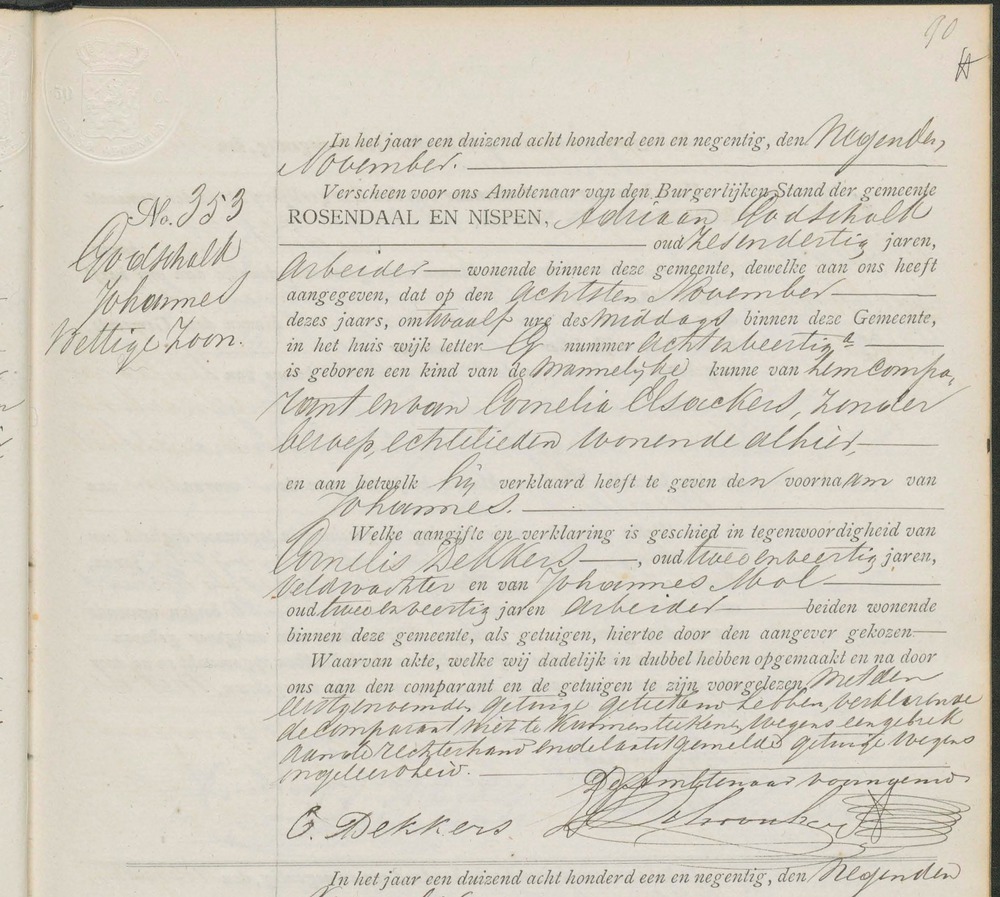 90
In het jaar een duizend acht honderd een en negentig, den Negenden
November.
Verscheen voor ons Ambtenaar van den Burgerlijken Stand der gemeente
No. 353
ROSENDAAL EN NISPEN, Adriaan Godschalk
oud zesendertig jaren,
Godschalk
Arbeider wonende binnen deze gemeente, dewelke aan ons heeft
Johannes
aangegeven, dat op den achtsten November
Wettige Zoon.
dezes jaars, om twaalf ure des middags binnen deze Gemeente,
in het huis wijk letter G nummer achtenveertig a
is geboren een kind van de Mannelijke kunne van hem compa-
rant en van Cornelia Elsackers, zonder
beroep, echtelieden wonende alhier,
en aan hetwelk hij verklaard heeft te geven den voornaam van
Johannes.
Welke aangifte en verklaring is geschied in tegenwoordigheid van
Cornelis Dekkers, oud tweeenveertig jaren,
veldwachter en van Johannes Mol
oud tweeenveertig jaren Arbeider beiden wonende
binnen deze gemeente, als getuigen, hiertoe door den aangever gekozen.
Waarvan akte, welke wij dadelijk in dubbel hebben opgemaakt en na door
ons aan den comparant en de getuigen te zijn voorgelezen, met den
eerstgenoemden getuige geteekend hebben, verklarende
de comparant niet te kunnen teekenen wegens een gebrek
aan de rechterhand en de laatstgemelde getuige wegens
ongeleerdheid.
De Ambtenaar voornoemd
C. Dekkers.
In het jaar een duizend acht honderd een en negentig, den Negenden